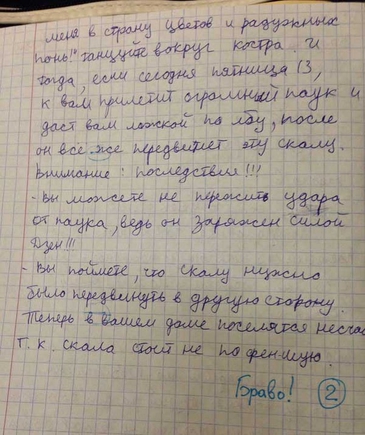 меня в страну цветов и радужных
понь!" танцуйте вокруг костра. И
тогда, если сегодня пятница 13,
к вам прилетит огромный паук и
даст вам ложкой по лбу, после
он все же передвинет эту скалу.
Внимание: последствия!!!
- Вы можете не пережить удара
от паука, ведь он заряжен силой
Дзен!!!
- Вы поймете, что скалу нужно
было передвинуть в другую сторону.
Теперь в вашем доме поселятся несчас
т.к. скала стоит не по феншую.
Браво! 2